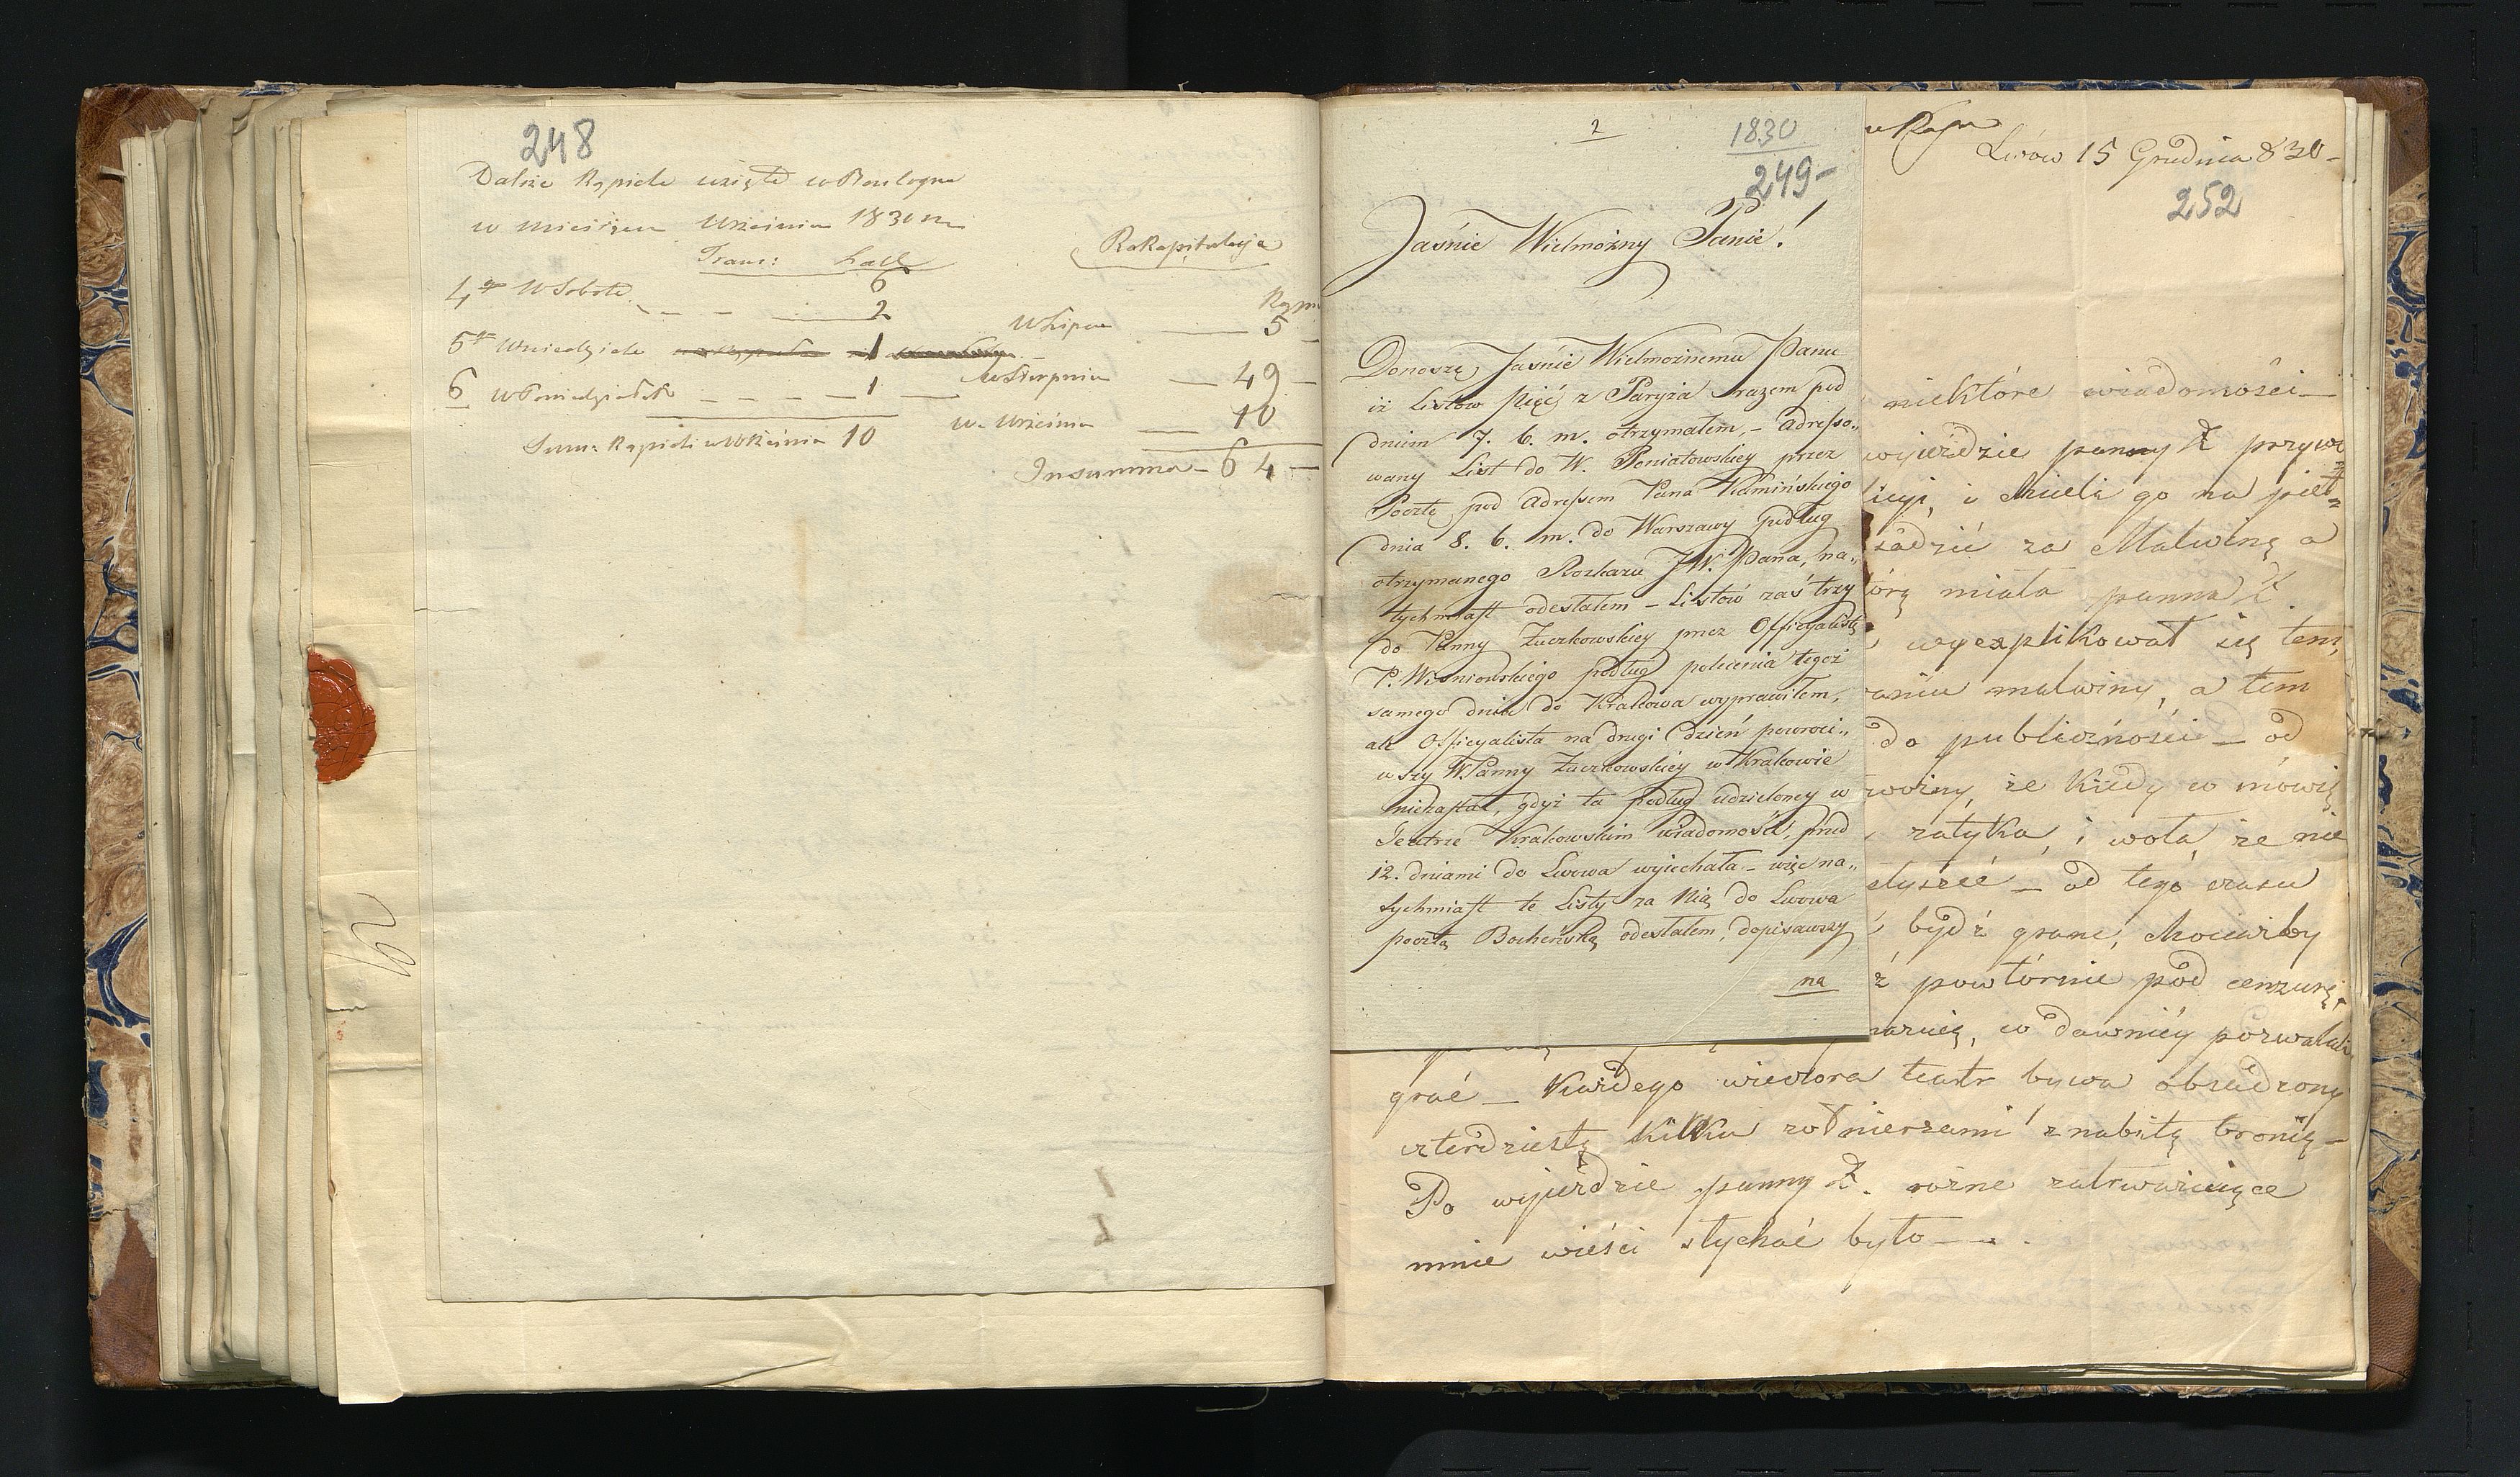 248
Dalsze Kąpiele wzięte w Boulogne
w Miesiącu Wrześniu 1830
Franc: Lall
4go W Sobotę 6
2
5go W niedzielę 1
6 W Poniedziałek 1
Sum: Kąpieli w Wrześniu 10
Rekapitulacja
Kąpie
W Lipcu 5
W Sierpniu 49
w Wrześniu 10
In summa 64
2
1830
249
Jaśnie Wielmożny Panie!
Donoszę Jaśnie Wielmożnemu Panu
iż Listów pięć z Paryża razem pod
dniem 7. b. m. otrzymałem, - adresso„
wany List do W. Poniatowskiey przez
Pocztę pod adressem Pana Kamińskiego
dnia 8. b. m. do Warszawy podług
otrzymanego Rozkazu JW. Pana, na„
tychmiast odesłałem - Listów zaś trzy
do Panny Żuczkowskiey przez Officyalistę
P. Wiśniowskiego podług polecenia tegoż
samego dnia do Krakowa wyprawiłem,
ale Officyalista na drugi dzień powroci„
wszy W. Panny Żuczkowskiey w Krakowie
niezastał, gdyż ta podług udzieloney w
Teatrze Krakowskim wiadomości, przed
12. dniami do Lwowa wyjechała - więc na„
tychmiast te Listy za Nią do Lwowa
pocztą Bocheńską odesłałem, dopisawszy
na
Lwów 15 Grudnia 830
252
niektóre wiadomości
wyjeździe panny Ż przyw
licyi, i chcieli go na pięt
sadzić za Malwinę a
tórą miała panna Ż.
wyexplikował się tem,
aniu malwiny, a tem
do publiczności - od
rwożny, że kiedy co mówią
zatyka, i woła że nie
słyszeć - od tego czasu
bydź grane, chociażby
ź powtórnie pod cenzurę,
co dawniey pozwalali
grać - Każdego wieczora teatr bywa obsadzony
czterdziestą kilku żołnierzami z nabitą bronią -
Po wyjeździe panny Ż. rożne zatrważaiące
mnie wieści słychać było -